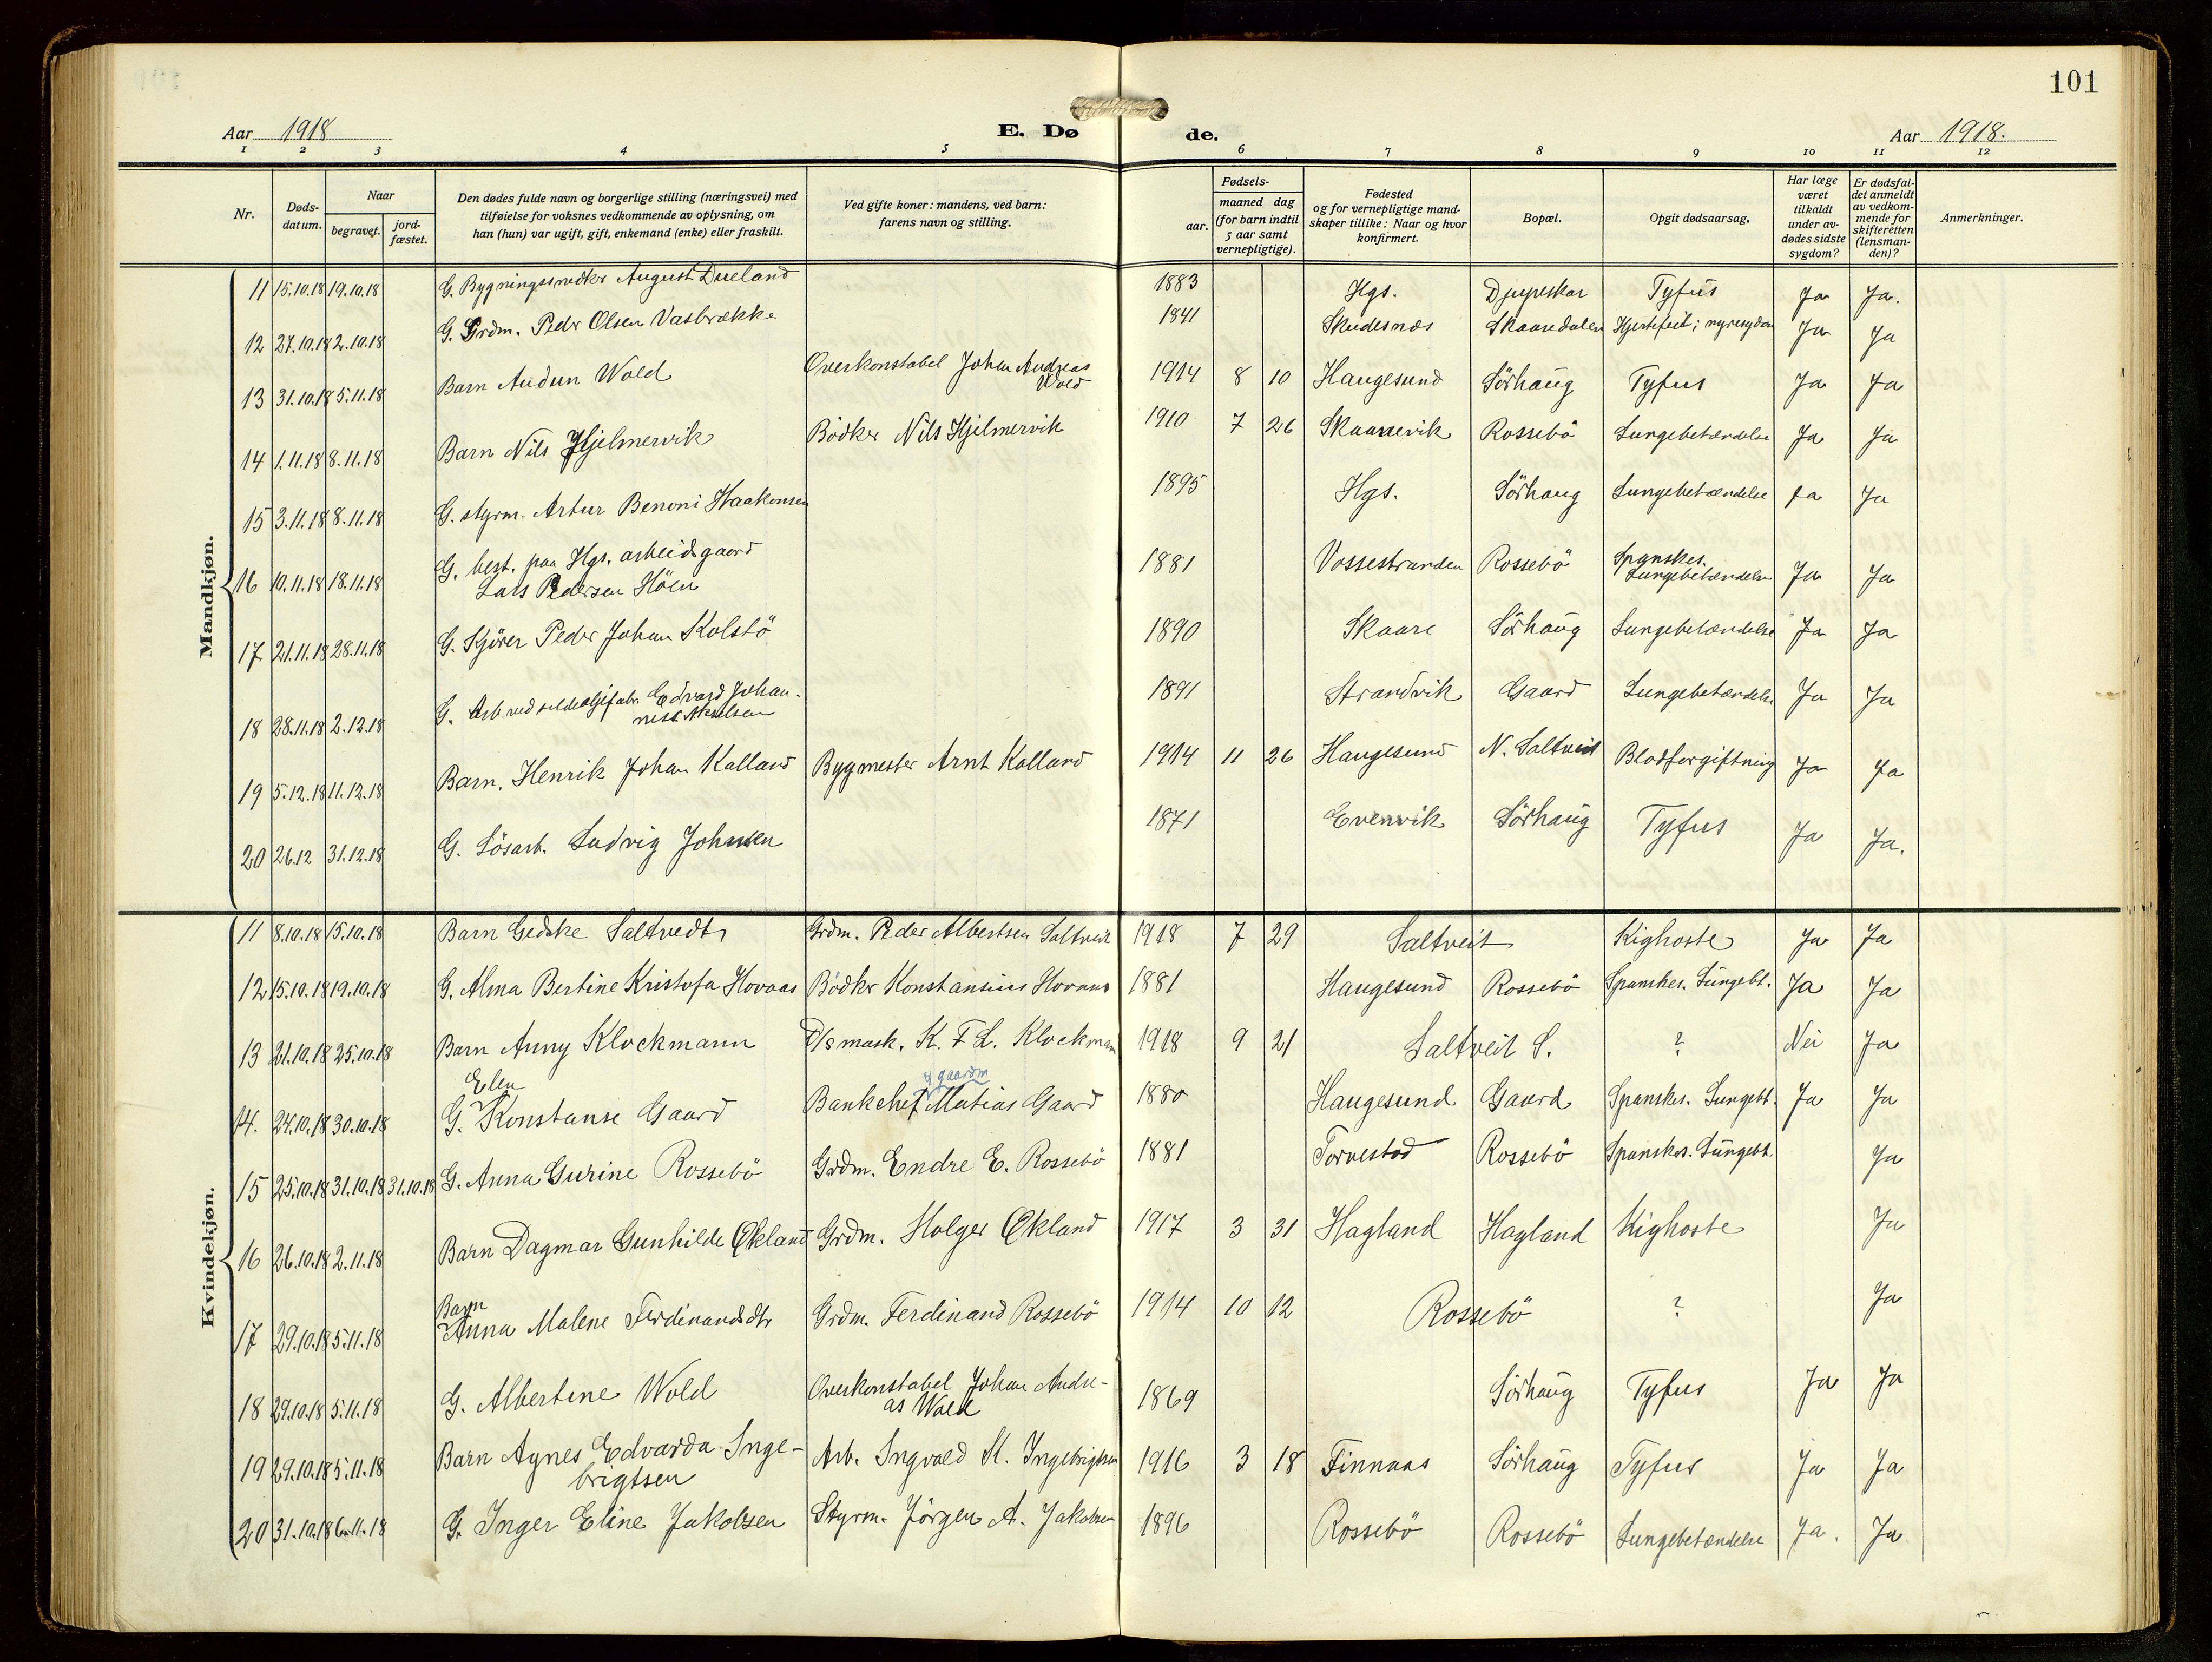 101
Aar 1918
E. Dø
de.
Aar 1918.
1 2 3 4 5 6 7 8 9 10 11 12
Nr.
Døds-
datum.
Naar
begravet.
jord-
fæstet.
Den dødes fulde navn og borgerlige stilling (næringsvei) med
tilføielse for voksnes vedkommende av oplysning, om
han (hun) var ugift, gift, enkemand (enke) eller fraskilt.
Ved gifte koner: mandens, ved barn:
farens navn og stilling.
Fødsels-
aar.
maaned dag
(for barn indtil
5 aar samt
vernepligtige).
Fødested
og for vernepligtige mand-
skaper tillike: Naar og hvor
konfirmert.
Bopæl.
Opgit dødsaarsag.
Har læge
været
tilkaldt
under av-
dødes sidste
sygdom?
Er dødsfal-
det anmeldt
av vedkom-
mende for
skifteretten
(lensman-
den)?
Anmerkninger.
Mandkjøn.
11 15.10.18 19.10.18 G. Bygningssnedker August Dueland 1883 Hgs. Djupeskar Tyfus Ja Ja.
12 27.10.18 2.10.18 G. Grdm. Peder Olsen Vasbrække 1841 Skudesnæs Skaaredalen Hjertefeil; nyresygdom Ja Ja
13 31.10.18 5.11.18 Barn Audun Wold Overkonstabel Johan Andreas
Wold 1914 8 10 Haugesund Sörhaug Tyfus Ja Ja
14 1.11.18 8.11.18 Barn Nils Hjelmervik Bödker Nils Hjelmervik 1910 7 26 Skaanevik Rossebö Lungebetændelse Ja Ja
15 3.11.18 8.11.18 G. styrm. Artur Benoni Haakonsen 1895 Hgs. Sörhaug Lungebetændelse Ja Ja
16 10.11.18 18.11.18 G. best. paa Hgs. arbeidsgaard
Lars Pedersen Höen 1881 Vossestranden Rossebö Spanskes.
Lungebetændelse Ja Ja
17 21.11.18 28.11.18 G. Kjörer Peder Johan Kolstö 1890 Skaare Sörhaug Lungebetændelse Ja Ja
18 28.11.18 2.12.18 G. Arb. ved sildeoljefabr. Edvard Johan-
nes Akselsen 1891 Strandvik Gaard Lungebetændelse Ja Ja
19 5.12.18 11.12.18 Barn. Henrik Johan Kalland Bygmester Arnt Kalland 1914 11 26 Haugesund N. Saltveit Blodforgiftning Ja Ja
20 26.12 31.12.18 G. Lösarb. Ludvig Johnsen 1871 Evenvik Sörhaug Tyfus Ja Ja.
Kvindekjøn.
11 8.10.18 15.10.18 Barn Gedske Saltvedt Grdm. Peder Albertsen Saltveit 1918 7 29 Saltveit Kighoste Ja Ja
12 15.10.18 19.10.18 G. Alma Bertine Kristofa Hovaas Bödker Konstansius Hovaas 1881 Haugesund Rossebö Spanskes. Lungebt. Ja Ja
13 21.10.18 25.10.18 Barn Anny Klockmann D/s mask. K. F. L. Klockmann 1918 9 21 Saltveit S. ? Nei Ja
& gaardm
14. 24.10.18 30.10.18 G. Elen Konstanse Gaard Bankchef Matias Gaard 1880 Haugesund Gaard Spanskes. Lungebt. Ja Ja
15 25.10.18 31.10.18 31.10.18 G. Anna Gurine Rossebö Grdm. Endre E. Rossebö 1881 Torvestad Rossebö Spanskes. Lungebt. Ja
16 26.10.18 2.11.18 Barn Dagmar Gunhilde Økland Grdm. Holger Økland 1917 3 31 Hagland Hagland Kighoste Ja
17 29.10.18 5.11.18 Barn Anna Malene Ferdinandsdtr Grdm. Ferdinand Rossebö 1914 10 12 Rossebö ? Ja
18 29.10.18 5.11.18 G. Albertine Wold Overkonstabel Johan Andre-
as Wold 1869 Sörhaug Tyfus Ja Ja
19 29.10.18 5.11.18 Barn Agnes Edvarda Inge-
brigtsen Arb. Ingvald K. Ingebrigtsen 1916 3 18 Finnaas Sörhaug Tyfus Ja Ja
20 31.10.18 6.11.18 G. Inger Eline Jakobsen Styrm. Jörgen A. Jakobsen 1896 Rossebö Rossebö Lungebetændelse Ja. Ja